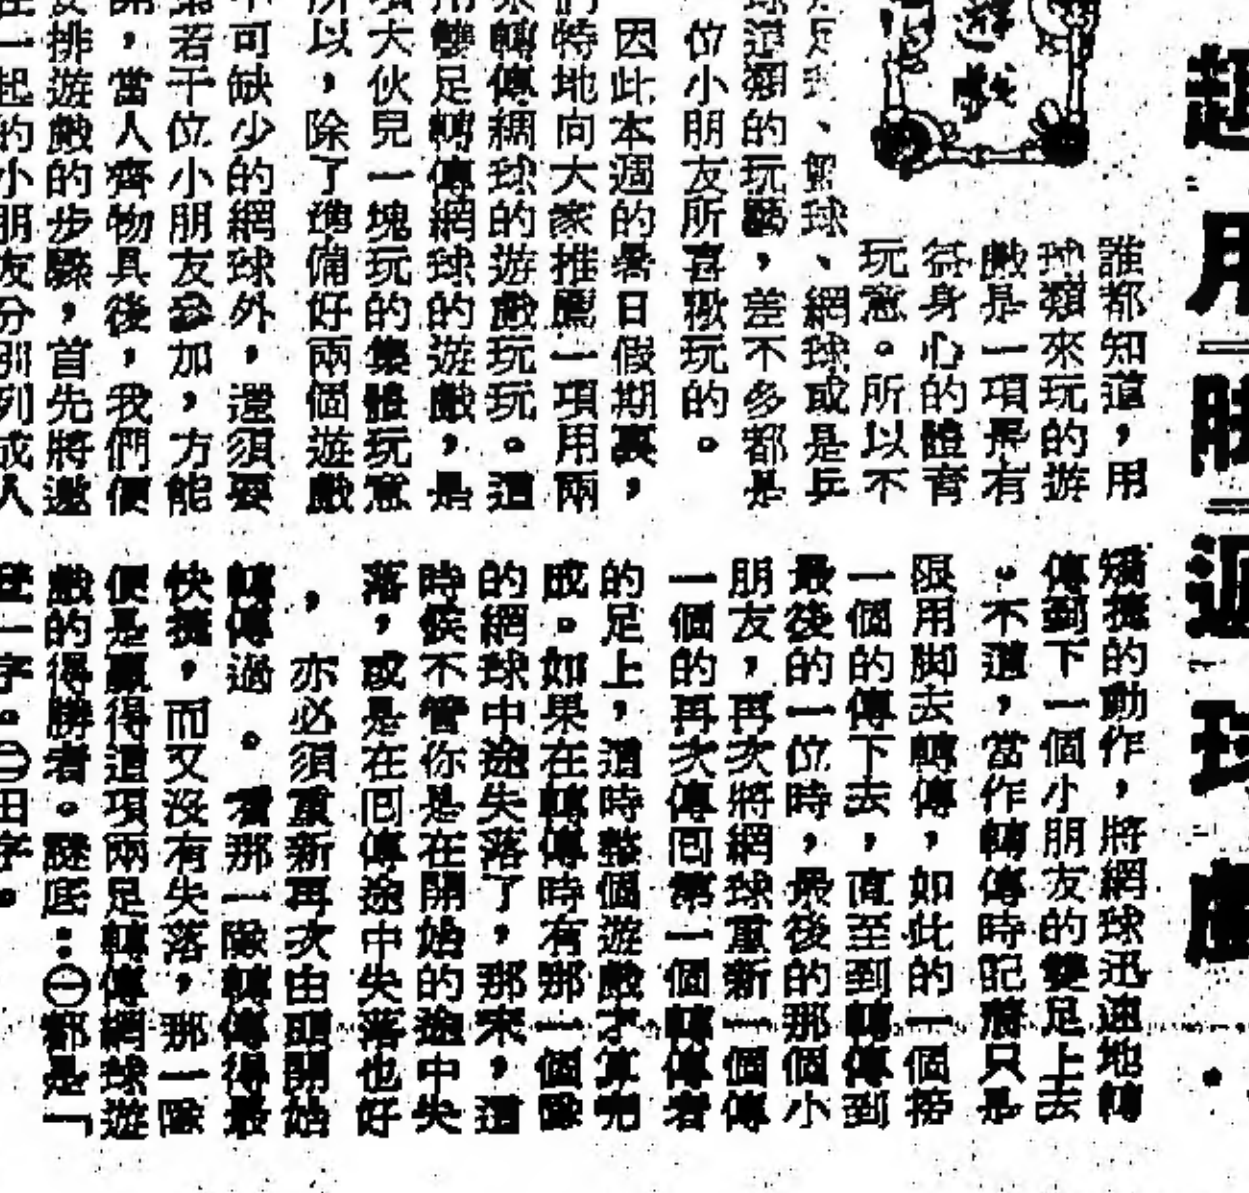 用腳遞球
遊戲
誰都知道,用
球類來玩的遊
戲是一項最有
益身心的體育
玩意。所以不
足球、籃球、網球或是乒
球這類的玩藝,差不多都是
位小朋友所喜歡玩的。
因此本週的暑日假期裏,
們特地向大家推薦一項用兩
來轉傳網球的遊戲玩玩。這
用雙足轉傳網球的遊戲,是
項大伙兒一塊玩的集體玩意
所以,除了準備好兩個遊戲
不可缺少的網球外,還須要
若干位小朋友參加,方能
開,當人齊物具後,我們便
安排遊戲的步驟,首先將邀
在一起的小朋友分別列成人
矯捷的動作,將網球迅速地轉
傳到下一個小朋友的雙足上去
。不道,當作轉傳時記着只是
限用脚去轉傳,如此的一個接
一個的傳下去,直至到轉傳到
最後的一位時,最後的那個小
朋友,再次將網球重新一個傳
一個的再次傳回第一個轉傳者
的足上,這時整個遊戲才算完
成。如果在轉傳時有那一個隊
的網球中途失落了,那末,這
時候不管你是在開始的途中失
落,或是在回傳途中失落也好
,亦必須重新再次由頭開始
轉傳過。看那一隊轉傳得最
快捷,而又沒有失落,那一隊
便是贏得這項兩足轉傳網球遊
戲的得勝者。謎底:㊀都是「
一字。㊁田字。